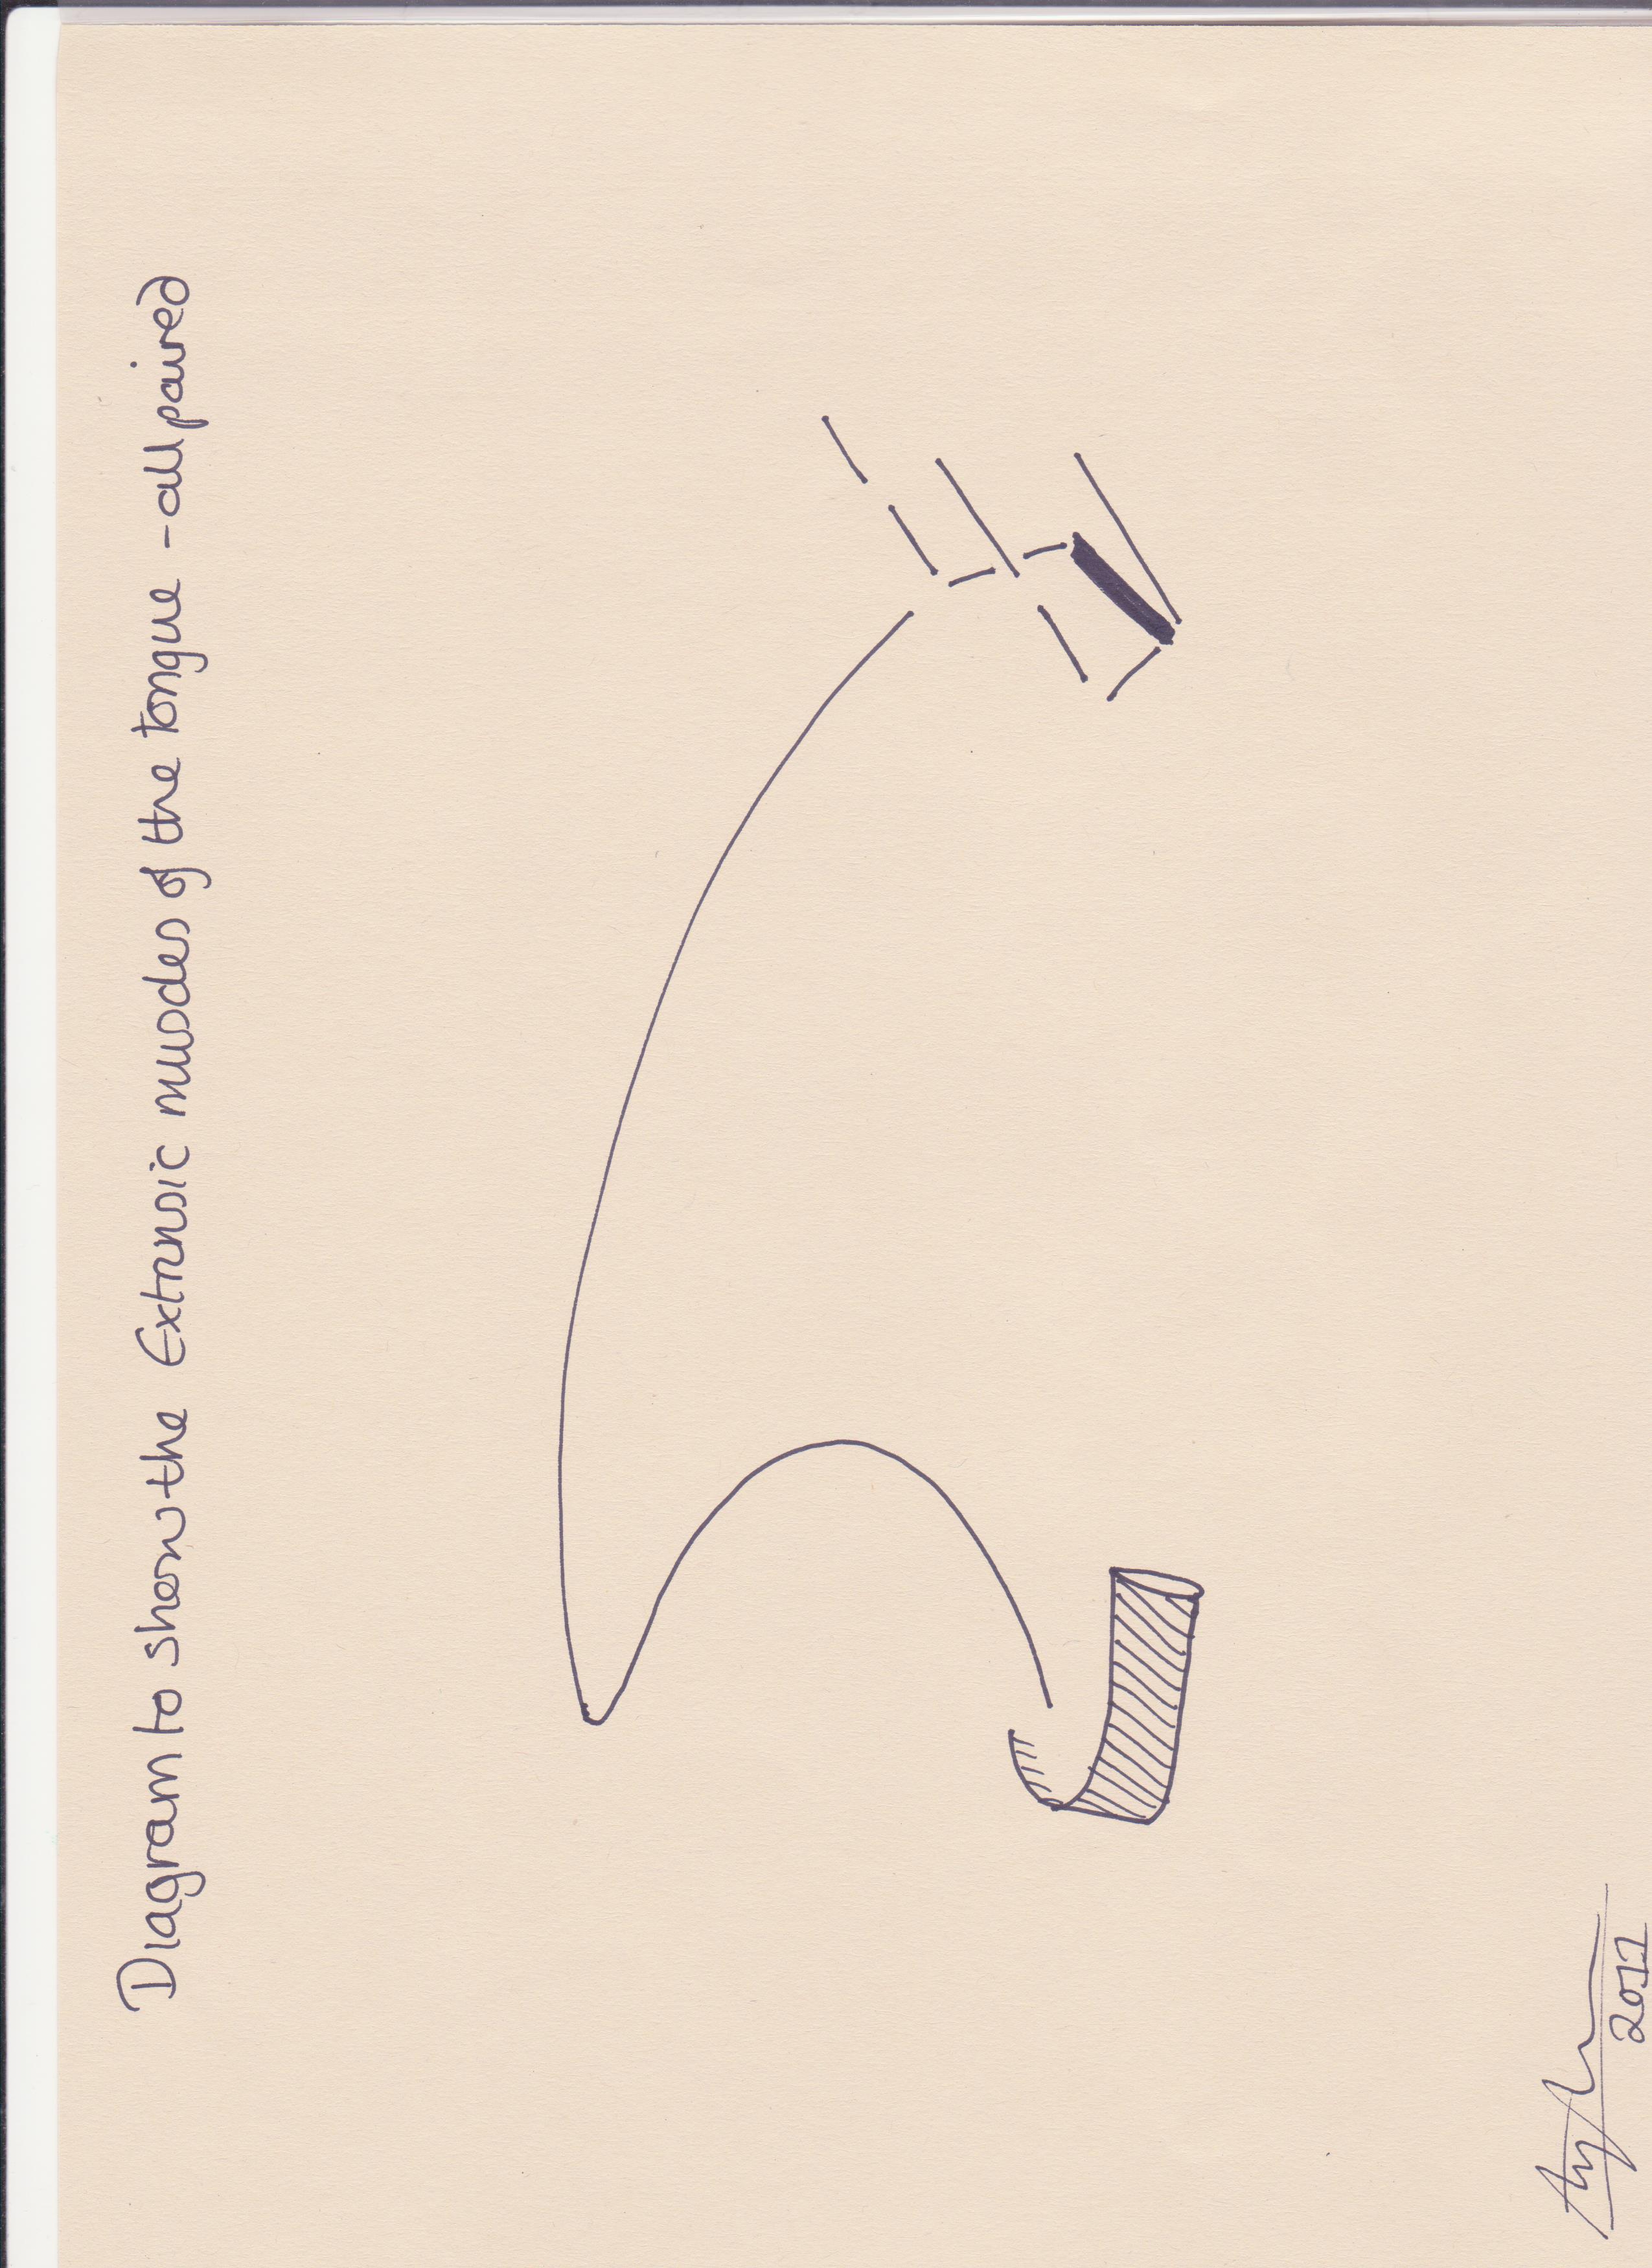 Diagram to show the Extrinsic muscles of the tongue - all paired
2011